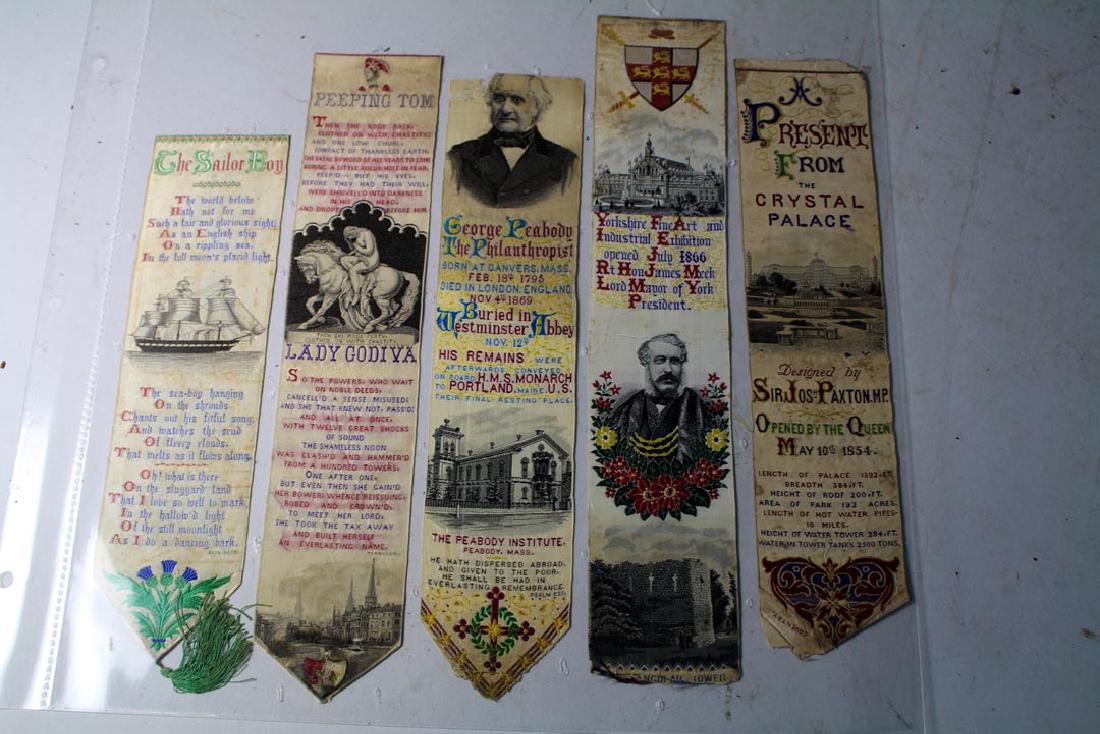 The Sailor Boy
The world below
Hath not for me
Such a fair and glorious sight,
As an English ship
On a rippling sea;
In the full moon's placid light.
The sea-boy hanging
On the shrouds
Chants out his fitful song,
And watches the scud
Of fleecy clouds,
That melts as it flows along.
Oh! what is there
On the sluggard land
That I love so well to mark,
In the hallow'd light
Of the still moonlight
As I do a dancing bark.
PEEPING TOM
THEN SHE RODE BACK,
CLOTHED ON WITH CHASTITY:
AND ONE LOW CHURL,
COMPACT OF THANKLESS EARTH,
THE FATAL BYWORD OF ALL YEARS TO COME
BORING A LITTLE AUGUR-HOLE IN FEAR,
PEEP'D - BUT HIS EYES,
BEFORE THEY HAD THEIR WILL,
WERE SHRIVELL'D INTO DARKNESS
IN HIS HEAD,
AND DROPT BEFORE HIM.
THEN SHE RODE FORTH,
CLOTHED ON WITH CHASTITY
LADY GODIVA
SO THE POWERS, WHO WAIT
ON NOBLE DEEDS,
CANCELL'D A SENSE MISUSED;
AND SHE THAT KNEW NOT, PASS'D:
AND ALL AT ONCE,
WITH TWELVE GREAT SHOCKS
OF SOUND
THE SHAMELESS NOON
WAS CLASH'D AND HAMMER'D
FROM A HUNDRED TOWERS,
ONE AFTER ONE:
BUT EVEN THEN SHE GAIN'D
HER BOWER: WHENCE REISSUING,
ROBED AND CROWN'D,
TO MEET HER LORD,
SHE TOOK THE TAX AWAY
AND BUILT HERSELF
AN EVERLASTING NAME.
TENNYSON
George Peabody
The Philanthropist
BORN AT DANVERS, MASS.
FEB. 18TH 1795
DIED IN LONDON, ENGLAND
NOV 4TH 1869
Buried in
Westminster Abbey
NOV. 12TH
HIS REMAINS WERE
AFTERWARDS CONVEYED
ON BOARD H.M.S. MONARCH
TO PORTLAND, MAINE, U.S.
THEIR FINAL RESTING PLACE.
THE PEABODY INSTITUTE,
PEABODY, MASS.
HE HATH DISPERSED ABROAD,
AND GIVEN TO THE POOR,
HE SHALL BE HAD IN
EVERLASTING REMEMBRANCE.
PSALM CXII
Yorkshire Fine Art and
Industrial Exhibition
opened July 1866
Rt Hon James Meek
Lord Mayor of York
President.
TOWER
A
PRESENT
FROM
THE
CRYSTAL
PALACE
Designed by
SIR JOSH PAXTON. M.P.
OPENED BY THE QUEEN
MAY 10TH 1854.
LENGTH OF PALACE 1592 FT.
BREADTH 384 FT.
HEIGHT OF ROOF 200 FT.
AREA OF PARK 192 ACRES.
LENGTH OF HOT WATER PIPES
16 MILES.
HEIGHT OF WATER TOWER 284 FT.
WATER IN TOWER TANKS 2500 TONS.